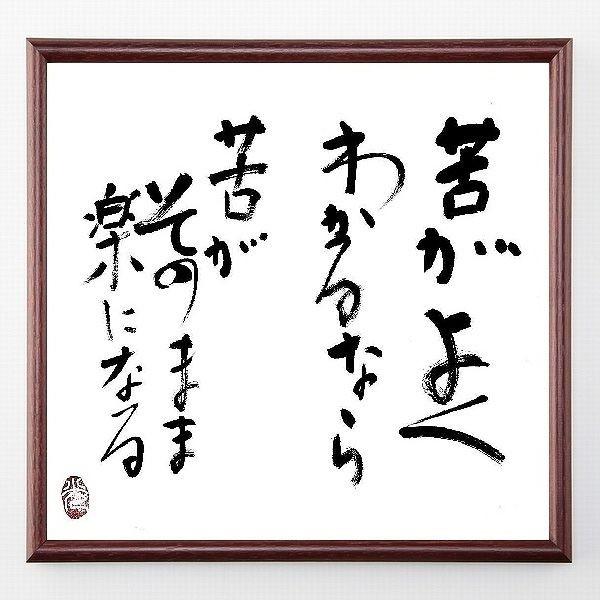 苦がよく
わかるなら
苦が
そのまま
楽になる